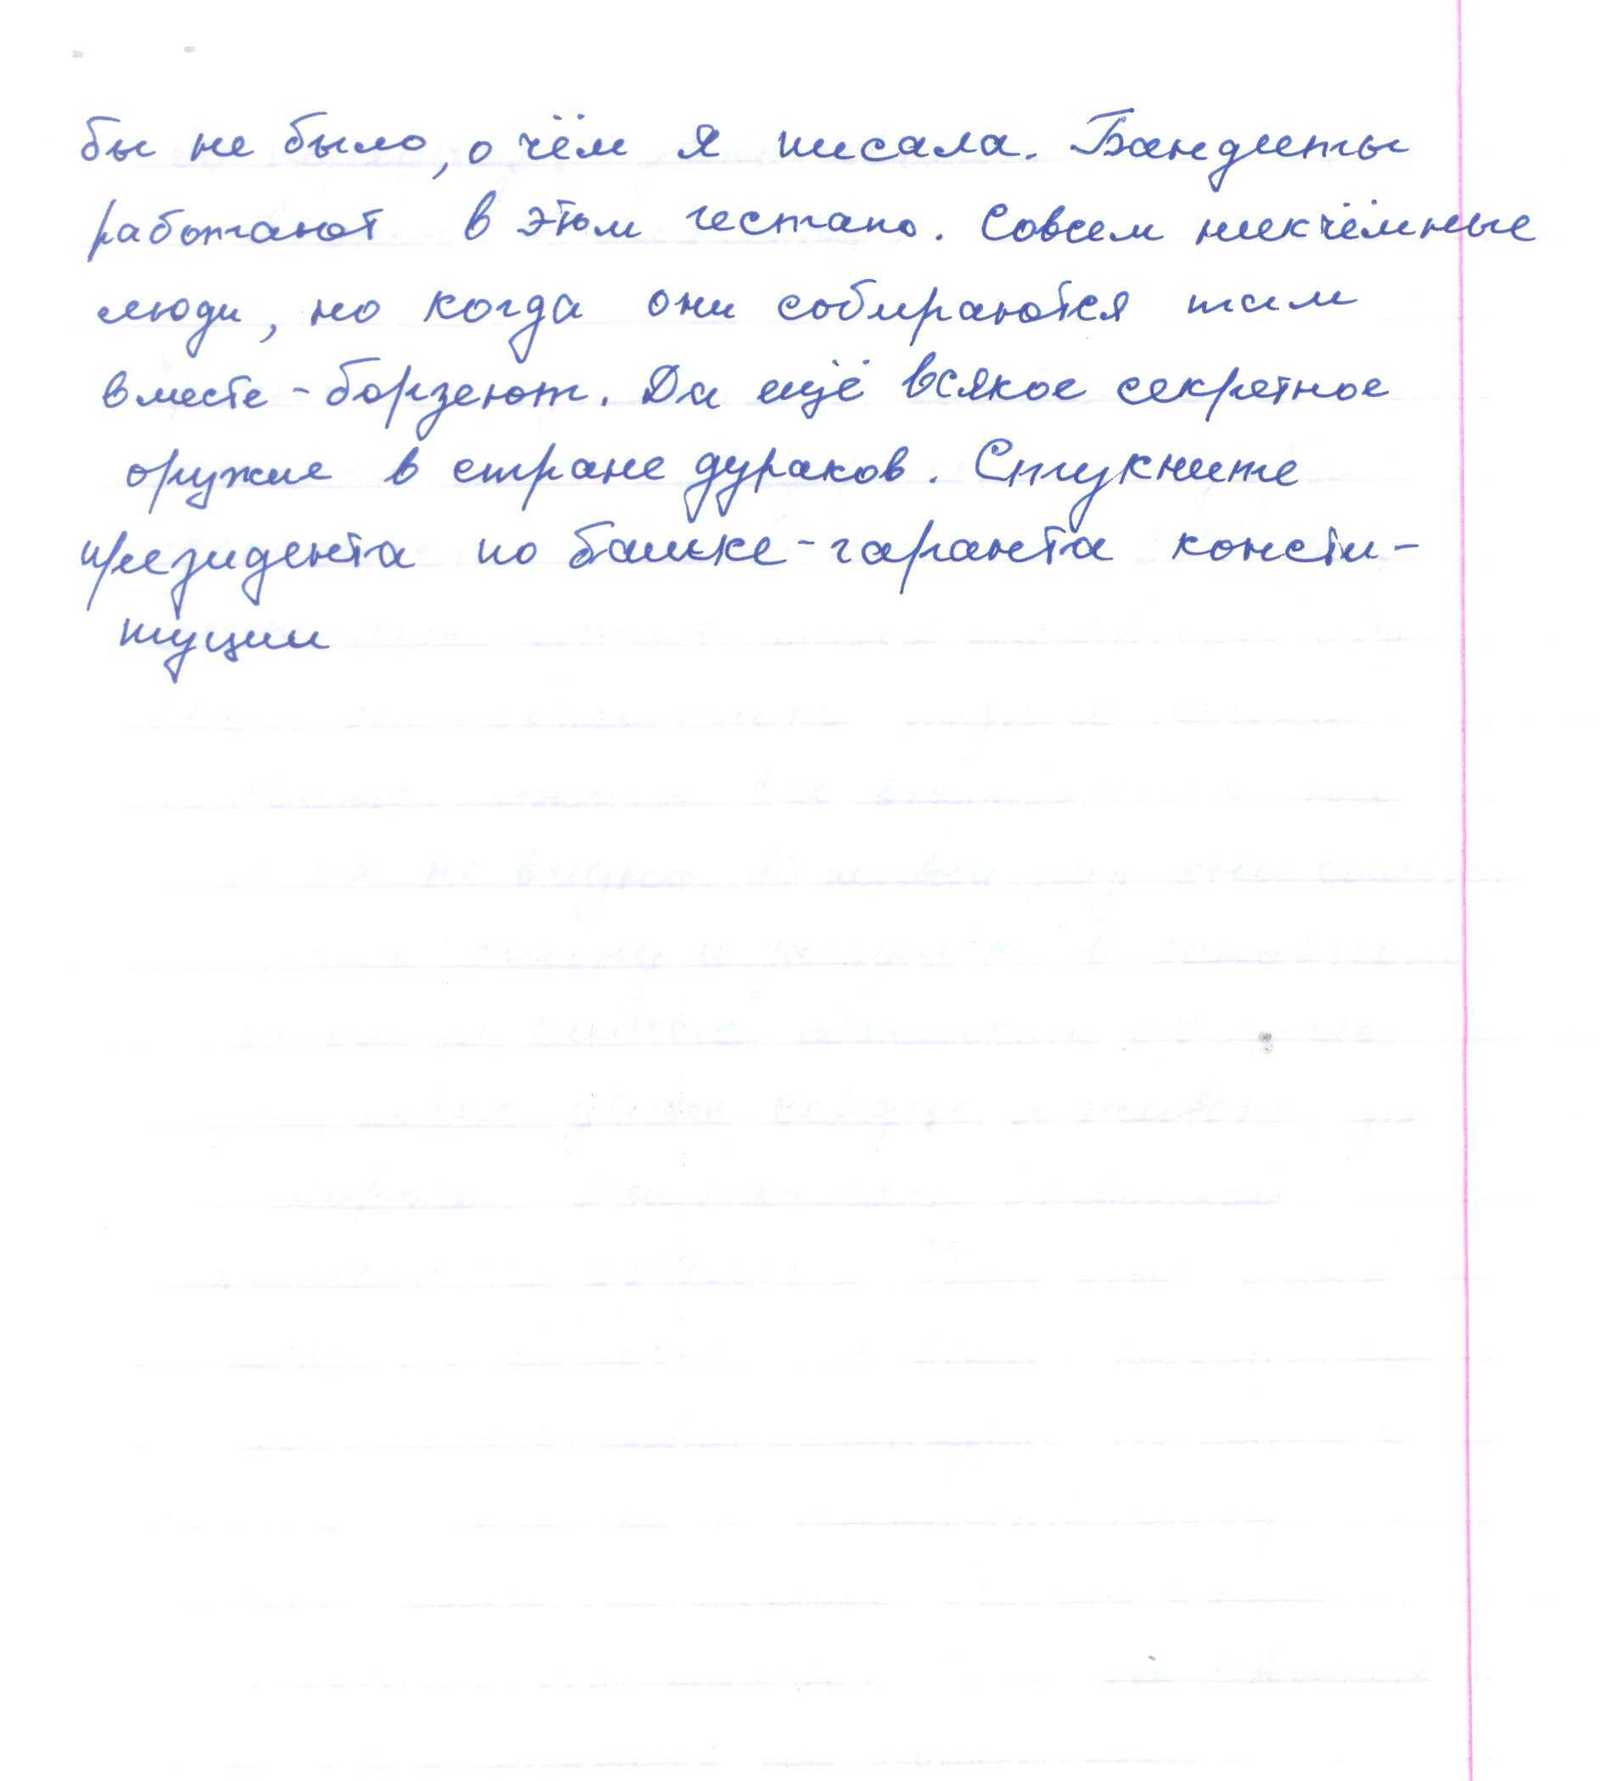 бы не было, о чём я писала. Бандиты
работают в этом гестапо. Совсем никчёмные
люди, но когда они собираются там
вместе - борзеют. Да ещё всякое секретное
оружие в стране дураков. Стукните
президента по башке - гаранта консти-
туции